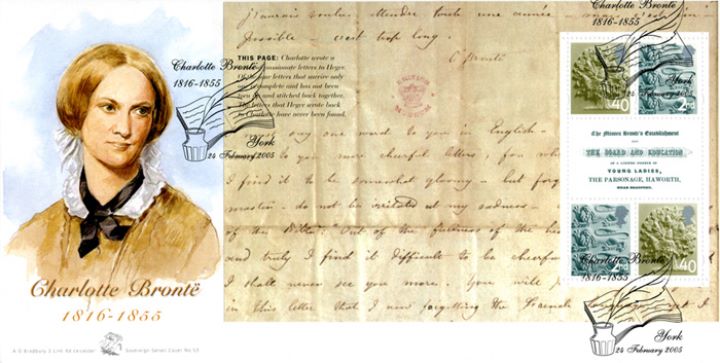 Charlotte Brontë
1816-1855
A G Bradbury
Sovereign Series Cover No 53
Charlotte Brontë
1816-1855
York
24 February 2005
THIS PAGE: Charlotte wrote a
passionate letters to Heger
letters that survive only
is incomplete and has not been
and stitched back together.
The letters that Heger wrote back
to Charlotte have never been found.
attendre toute une année
possible - c'est trop long.
C Brontë
any one word to you in English -
to you more cheerful letters, for when
I find it to be somewhat gloomy - but forgive
master - do not be irritated at my sadness -
of the Bible: Out of the fulness of the heart
and truly I find it difficult to be cheerful
I shall never see you more. You will
in this letter that I am forgetting the French
yet I
Charlotte Brontë
1816-1855
York
24 February 2005
40
2nd
The Misses Brontë's Establishment
FOR
THE BOARD AND EDUCATION
OF A LIMITED NUMBER OF
YOUNG LADIES,
THE PARSONAGE, HAWORTH,
NEAR BRADFORD.
2nd
40
Charlotte Brontë
1816-1855
York
24 February 2005